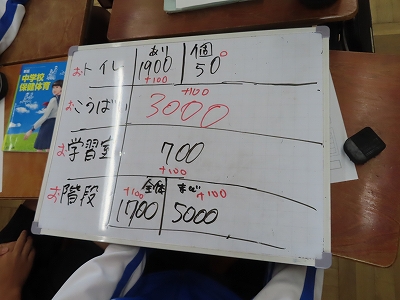 あり 個
おトイレ 1900 50°
+100
+100
おこうばい 3000
お学習室 700
+100
+100 全体 まど +100
お階段 1700 5000
中学校
保健体育